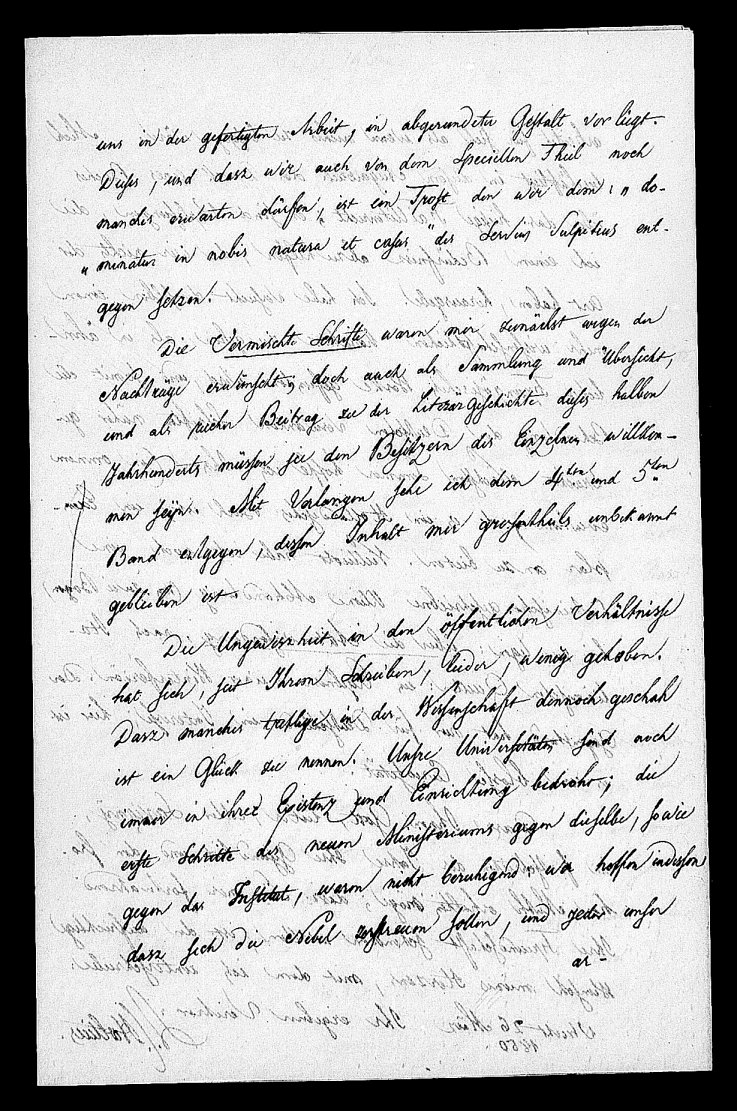 uns in der gefertigten Arbeit, in abgerundeter Gestalt vor liegt.
Dieses, und dasz wir auch von dem Speciellen Theil noch
manches erwarten dürfen, ist ein Trost den wir dem: „do-
„minatur in nobis natura et casus" des Servius Sulpitius ent-
gegen setzen.
Die Vermischte Schrifte waren mir zunächst wegen der
Nachträge erwünscht; doch auch als Sammlung und Übersicht,
und als reicher Beitrag zu der Literärgeschichte dieses halben
Jahrhunderts müssen sie den Besitzern des Einzelnen willkom-
men seyn. Mit Verlangen sehe ich dem 4ten und 5ten
Band entgegen, dessen Inhalt mir groszentheils unbekannt
geblieben ist.
Die Ungewissheit in den öffentlichen Verhältnisse
hat sich, seit Ihrem Schreiben, leider, wenig gehoben.
Dasz manches in der Wissenschaft dennoch geschah
ist ein Glück zu nennen. Unsre Universitäten sind noch
immer in ihrer Existenz und Einrichtung bedroht; die
erste Schritte des neuen Ministeriums gegen dieselbe, sowie
gegen das Institut, waren nicht beruhigend, wir hoffen indessen
dasz sich die Nebel zerstreuen sollen, und jeder unser
ar-